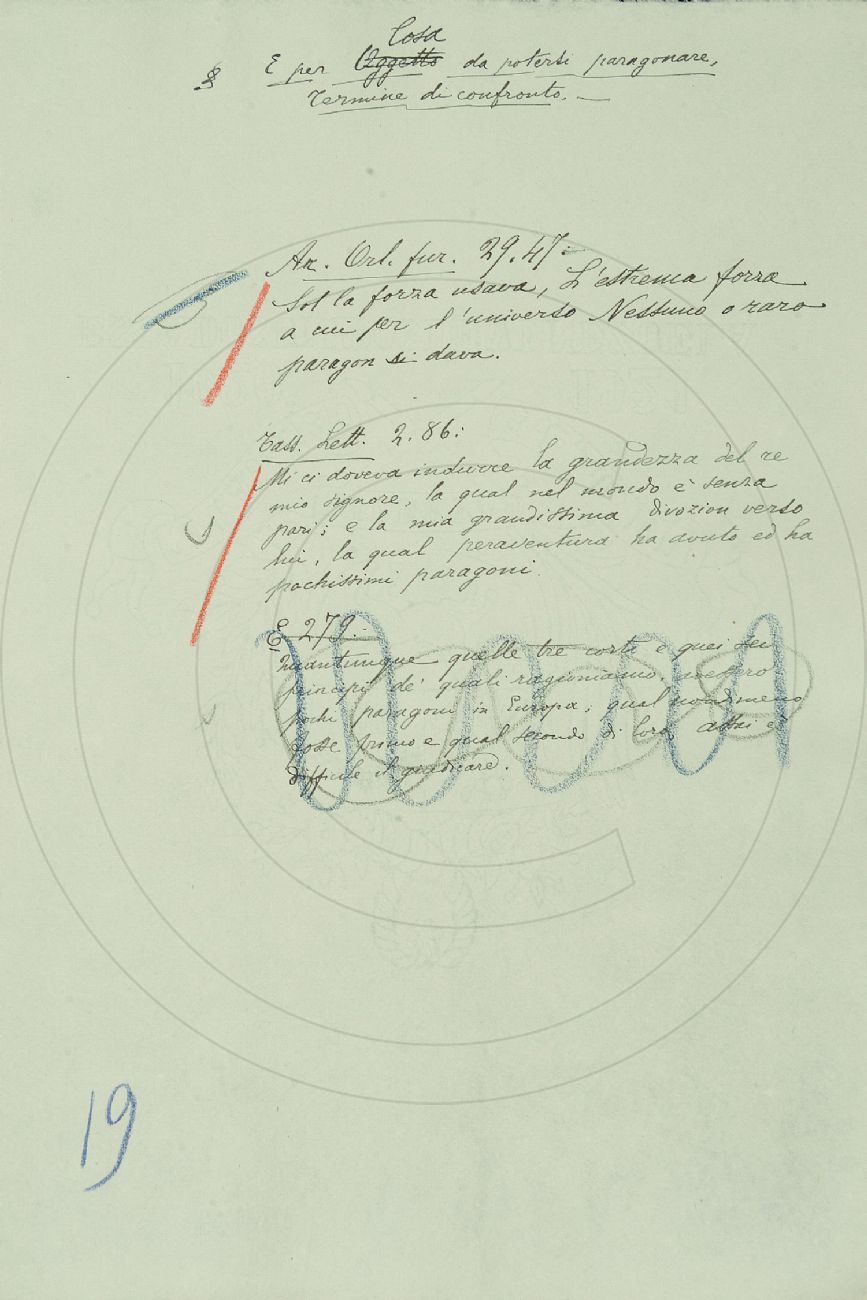 Cosa
§ E per Oggetto da potersi paragonare,
Termine di confronto. —
Ar. Orl. fur. 29. 47:
Sol la forza usava, L'estrema forza
a cui per l'universo Nessuno o raro
paragon si dava.
Tass. Lett. 2. 86:
Mi ci doveva indurre la grandezza del re
mio signore, la qual nel mondo è senza
pari; e la mia grandissima divozion verso
lui, la qual peraventura ha avuto ed ha
pochissimi paragoni.
E 279:
Quantunque quelle tre corti e quei sei
principi de' quali ragioniamo, avessero
pochi paragoni in Europa; qual nondimeno
fosse primo e qual secondo di loro, assai è
difficile il giudicare.
19